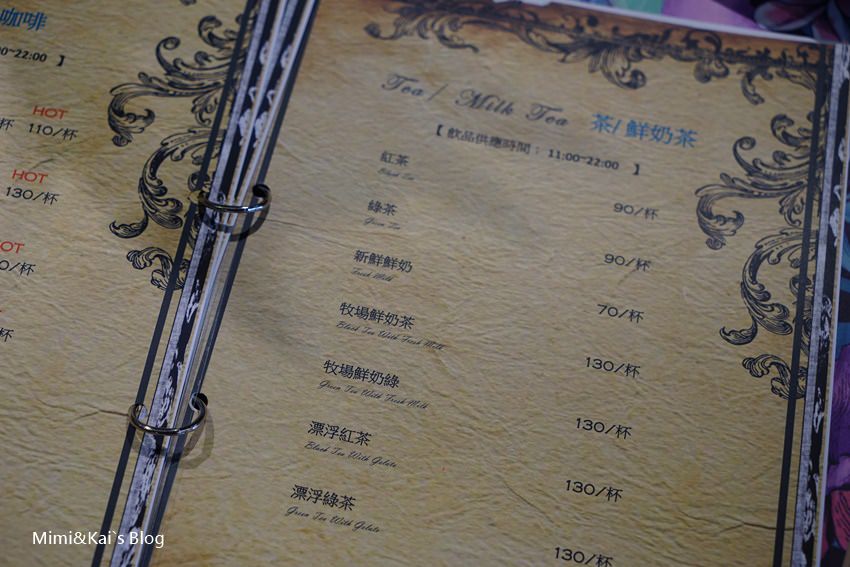 咖啡
0~22:00 】
HOT
杯 110/杯
HOT
130/杯
OT
0/杯
杯
Tea / Milk Tea 茶/鮮奶茶
【 飲品供應時間： 11:00~22:00 】
紅茶
Black Tea
90/杯
綠茶
Green Tea
90/杯
新鮮鮮奶
Fresh Milk
70/杯
牧場鮮奶茶
Black Tea With Fresh Milk
130/杯
牧場鮮奶綠
Green Tea With Fresh Milk
130/杯
漂浮紅茶
Black Tea With Gelato
130/杯
漂浮綠茶
Green Tea With Gelato
130/杯
Mimi&Kai`s Blog